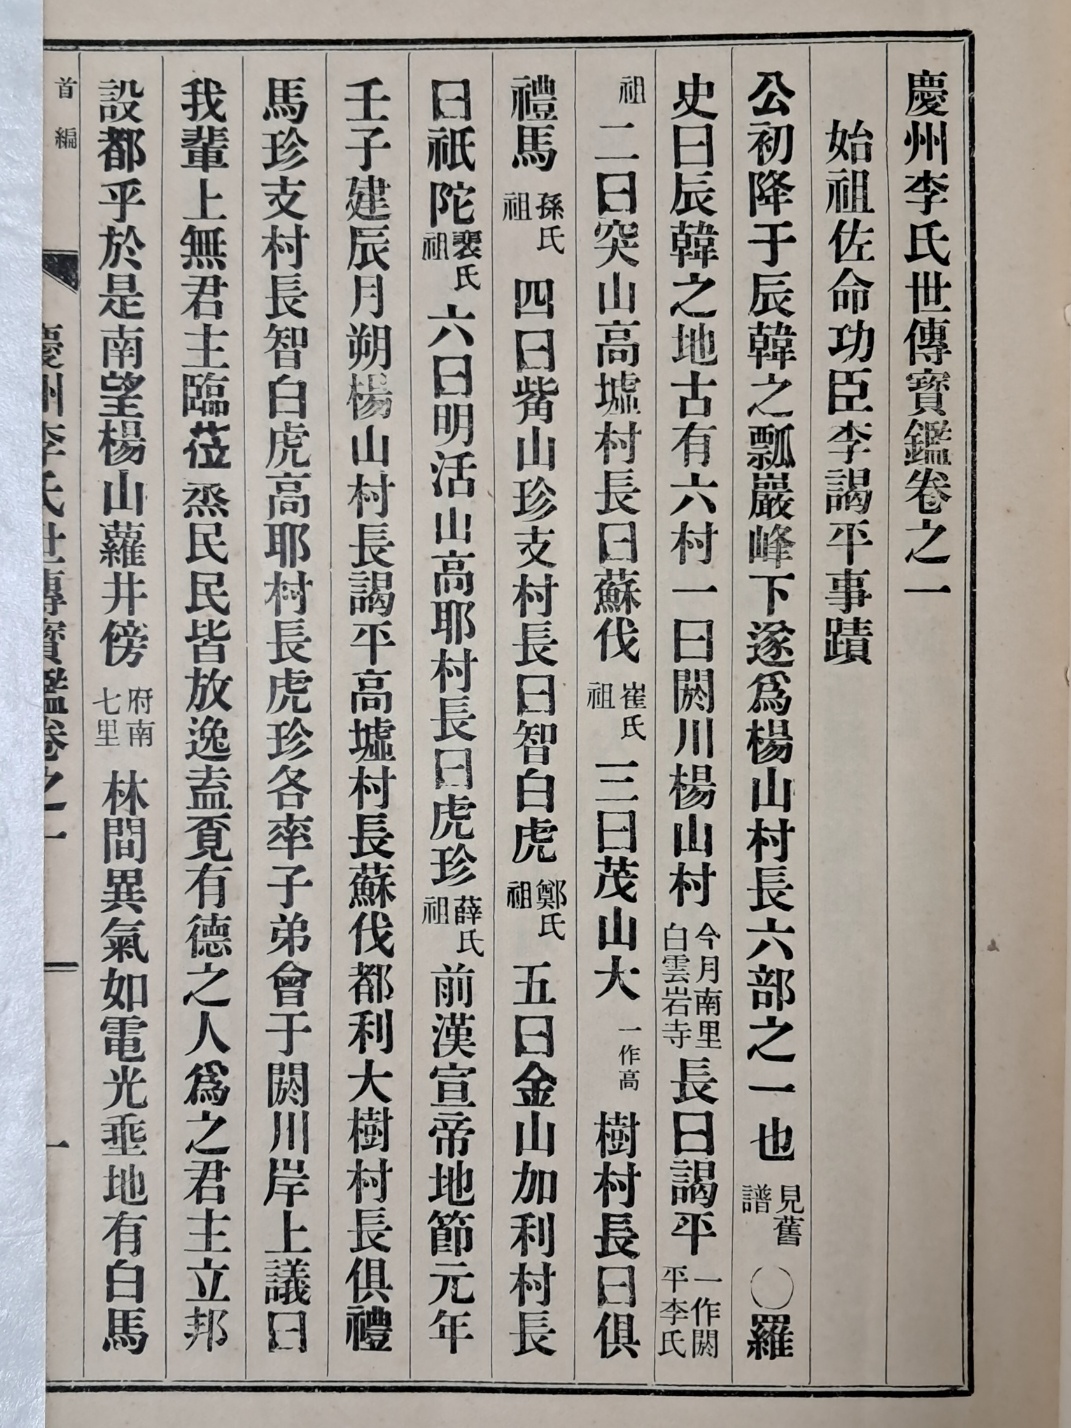 慶州李氏世傳寶鑑卷之一
始祖佐命功臣李謁平事蹟
公初降于辰韓之瓢巖峰下遂爲楊山村長六部之一也見舊譜〇羅
史曰辰韓之地古有六村一曰閼川楊山村今月南里白雲岩寺長曰謁平一作閼平李氏
祖二曰突山高墟村長曰蘇伐崔氏祖三曰茂山大一作高樹村長曰俱
禮馬孫氏祖四曰觜山珍支村長曰智白虎鄭氏祖五曰金山加利村長
曰祇陀裵氏祖六曰明活山高耶村長曰虎珍薛氏祖前漢宣帝地節元年
壬子建辰月朔楊山村長謁平高墟村長蘇伐都利大樹村長俱禮
馬珍支村長智白虎高耶村長虎珍各率子弟會于閼川岸上議曰
我輩上無君主臨莅烝民民皆放逸盍覔有德之人爲之君主立邦
設都乎於是南望楊山蘿井傍府南七里林間異氣如電光垂地有白馬
首編 慶州李氏世傳寶鑑卷之一 一